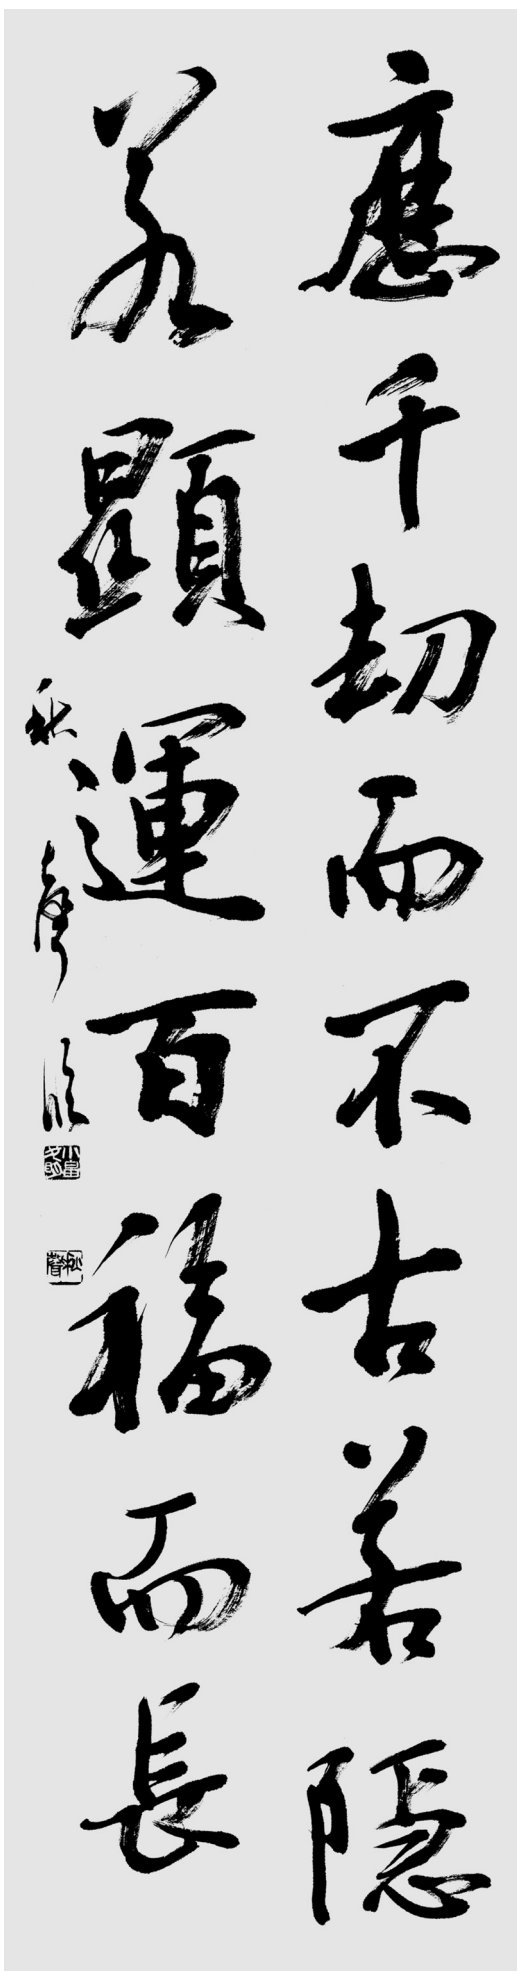 歷千劫而不古若隱
若顯運百福而長
秋聲臨